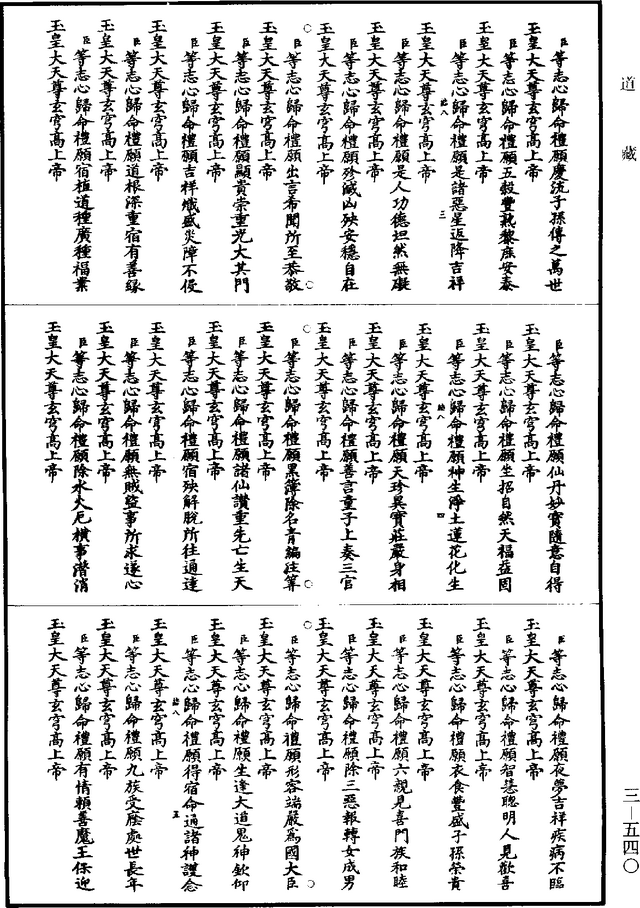 道藏
臣等志心歸命禮願慶流子孫傳之萬世
玉皇大天尊玄穹高上帝
臣等志心歸命禮願五穀豐熟黎庶安泰
玉皇大天尊玄穹高上帝
臣等志心歸命禮願是諸惡星返降吉祥
玉皇大天尊玄穹高上帝
臣等志心歸命禮願是人功德坦然無礙
玉皇大天尊玄穹高上帝
臣等志心歸命禮願殄滅凶殃安穩自在
玉皇大天尊玄穹高上帝
臣等志心歸命禮願出言希聞所至恭敬
玉皇大天尊玄穹高上帝
臣等志心歸命禮願顯貴崇重光大其門
玉皇大天尊玄穹高上帝
臣等志心歸命禮願吉祥熾盛災障不侵
玉皇大天尊玄穹高上帝
臣等志心歸命禮願道根深重宿有善緣
玉皇大天尊玄穹高上帝
臣等志心歸命禮願宿植道種廣種福業
玉皇大天尊玄穹高上帝
臣等志心歸命禮願仙丹妙寶隨意自得
玉皇大天尊玄穹高上帝
臣等志心歸命禮願坐招自然天福益固
玉皇大天尊玄穹高上帝
臣等志心歸命禮願神生淨土蓮花化生
玉皇大天尊玄穹高上帝
臣等志心歸命禮願天珍異寶莊嚴身相
玉皇大天尊玄穹高上帝
臣等志心歸命禮願善言童子上奏三官
玉皇大天尊玄穹高上帝
臣等志心歸命禮願黑簿除名青編注筭
玉皇大天尊玄穹高上帝
臣等志心歸命禮願諸仙讚重先亡生天
玉皇大天尊玄穹高上帝
臣等志心歸命禮願宿殃解脫所往通達
玉皇大天尊玄穹高上帝
臣等志心歸命禮願無賊盜事所求遂心
玉皇大天尊玄穹高上帝
臣等志心歸命禮願除水火厄橫事潛消
玉皇大天尊玄穹高上帝
臣等志心歸命禮願夜夢吉祥疾病不臨
玉皇大天尊玄穹高上帝
臣等志心歸命禮願智慧聰明人見歡喜
玉皇大天尊玄穹高上帝
臣等志心歸命禮願衣食豐盛子孫榮貴
玉皇大天尊玄穹高上帝
臣等志心歸命禮願六親見喜門族和睦
玉皇大天尊玄穹高上帝
臣等志心歸命禮願除三惡報轉女成男
玉皇大天尊玄穹高上帝
臣等志心歸命禮願形容端嚴為國大臣
玉皇大天尊玄穹高上帝
臣等志心歸命禮願生逢大道鬼神欽仰
玉皇大天尊玄穹高上帝
臣等志心歸命禮願得宿命通諸神護念
玉皇大天尊玄穹高上帝
臣等志心歸命禮願九族受廕處世長年
玉皇大天尊玄穹高上帝
臣等志心歸命禮願有情賴善魔王保迎
玉皇大天尊玄穹高上帝
三—五四〇